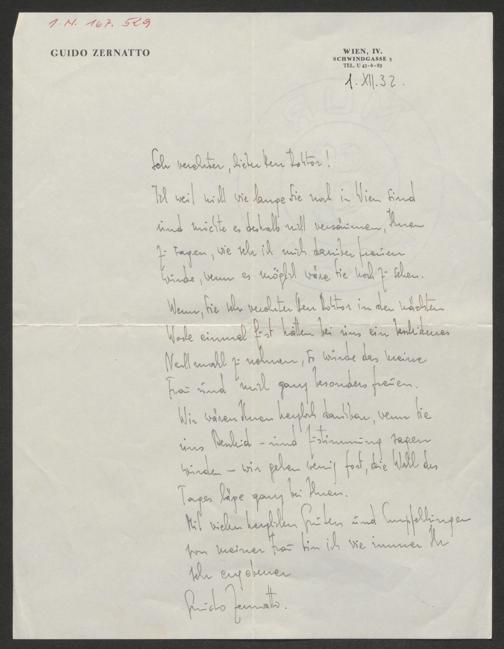 I.N. 167.529
GUIDO ZERNATTO
WIEN, IV.
SCHWINDGASSE 5
TEL. U 45-6-89
1. XII. 32.
Sehr verehrter, lieber Herr Doktor!
Ich weiß nicht wie lange Sie noch in Wien sind
und möchte es deshalb nicht versäumen, Ihnen
zu sagen, wie sehr ich mich darüber freuen
würde, wenn es möglich wäre Sie noch zu sehen.
Wenn Sie sehr verehrter Herr Doktor in der nächsten
Woche einmal Zeit hätten bei uns ein bescheidenes
Nachtmahl zu nehmen, so würde das meine
Frau und mich ganz besonders freuen.
Wir wären Ihnen herzlich dankbar, wenn Sie
uns Bescheid – und Zustimmung sagen
würden – wir gehen wenig fort, die Wahl des
Tages läge ganz bei Ihnen.
Mit vielen herzlichen Grüßen und Empfehlungen
von meiner Frau bin ich wie immer Ihr
sehr ergebener
Guido Zernatto.